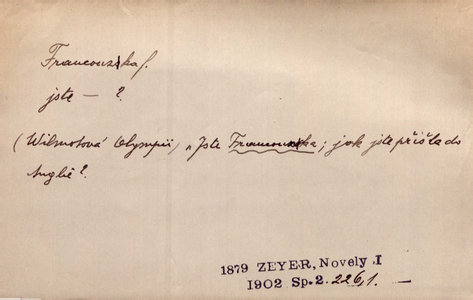 Francouzka f.
jste — ?
(Wilmotová Olympii) „Jste Francouzka; jak jste přišla do
Anglie?
1879 ZEYER, Novely I
1902 Sp. 2. 226,1.—